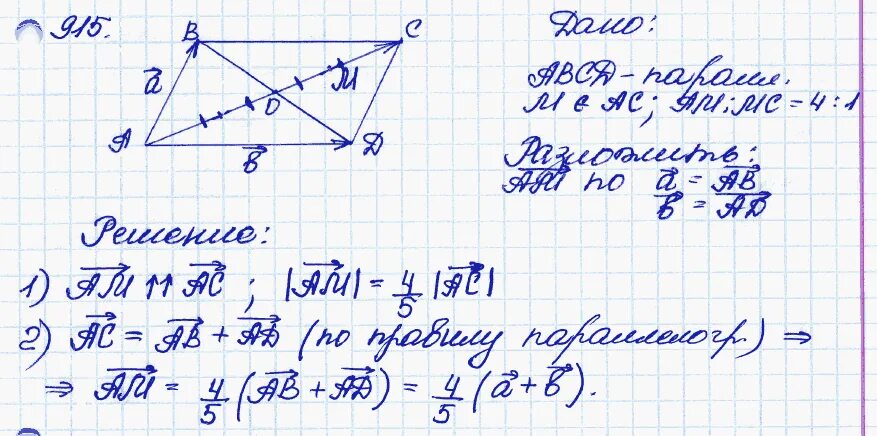 915.
B C
Дано:
a⃗ O M
ABCD – паралл.
M ∈ AC; AM:MC = 4:1
A b⃗ D
Разложить:
AM⃗ по a⃗ = AB⃗
b⃗ = AD⃗
Решение:
1) AM⃗ ↑↑ AC⃗ ; |AM⃗| = 4/5 |AC⃗|
2) AC⃗ = AB⃗ + AD⃗ (по правилу параллелогр.) ⇒
⇒ AM⃗ = 4/5 (AB⃗ + AD⃗) = 4/5 (a⃗ + b⃗).